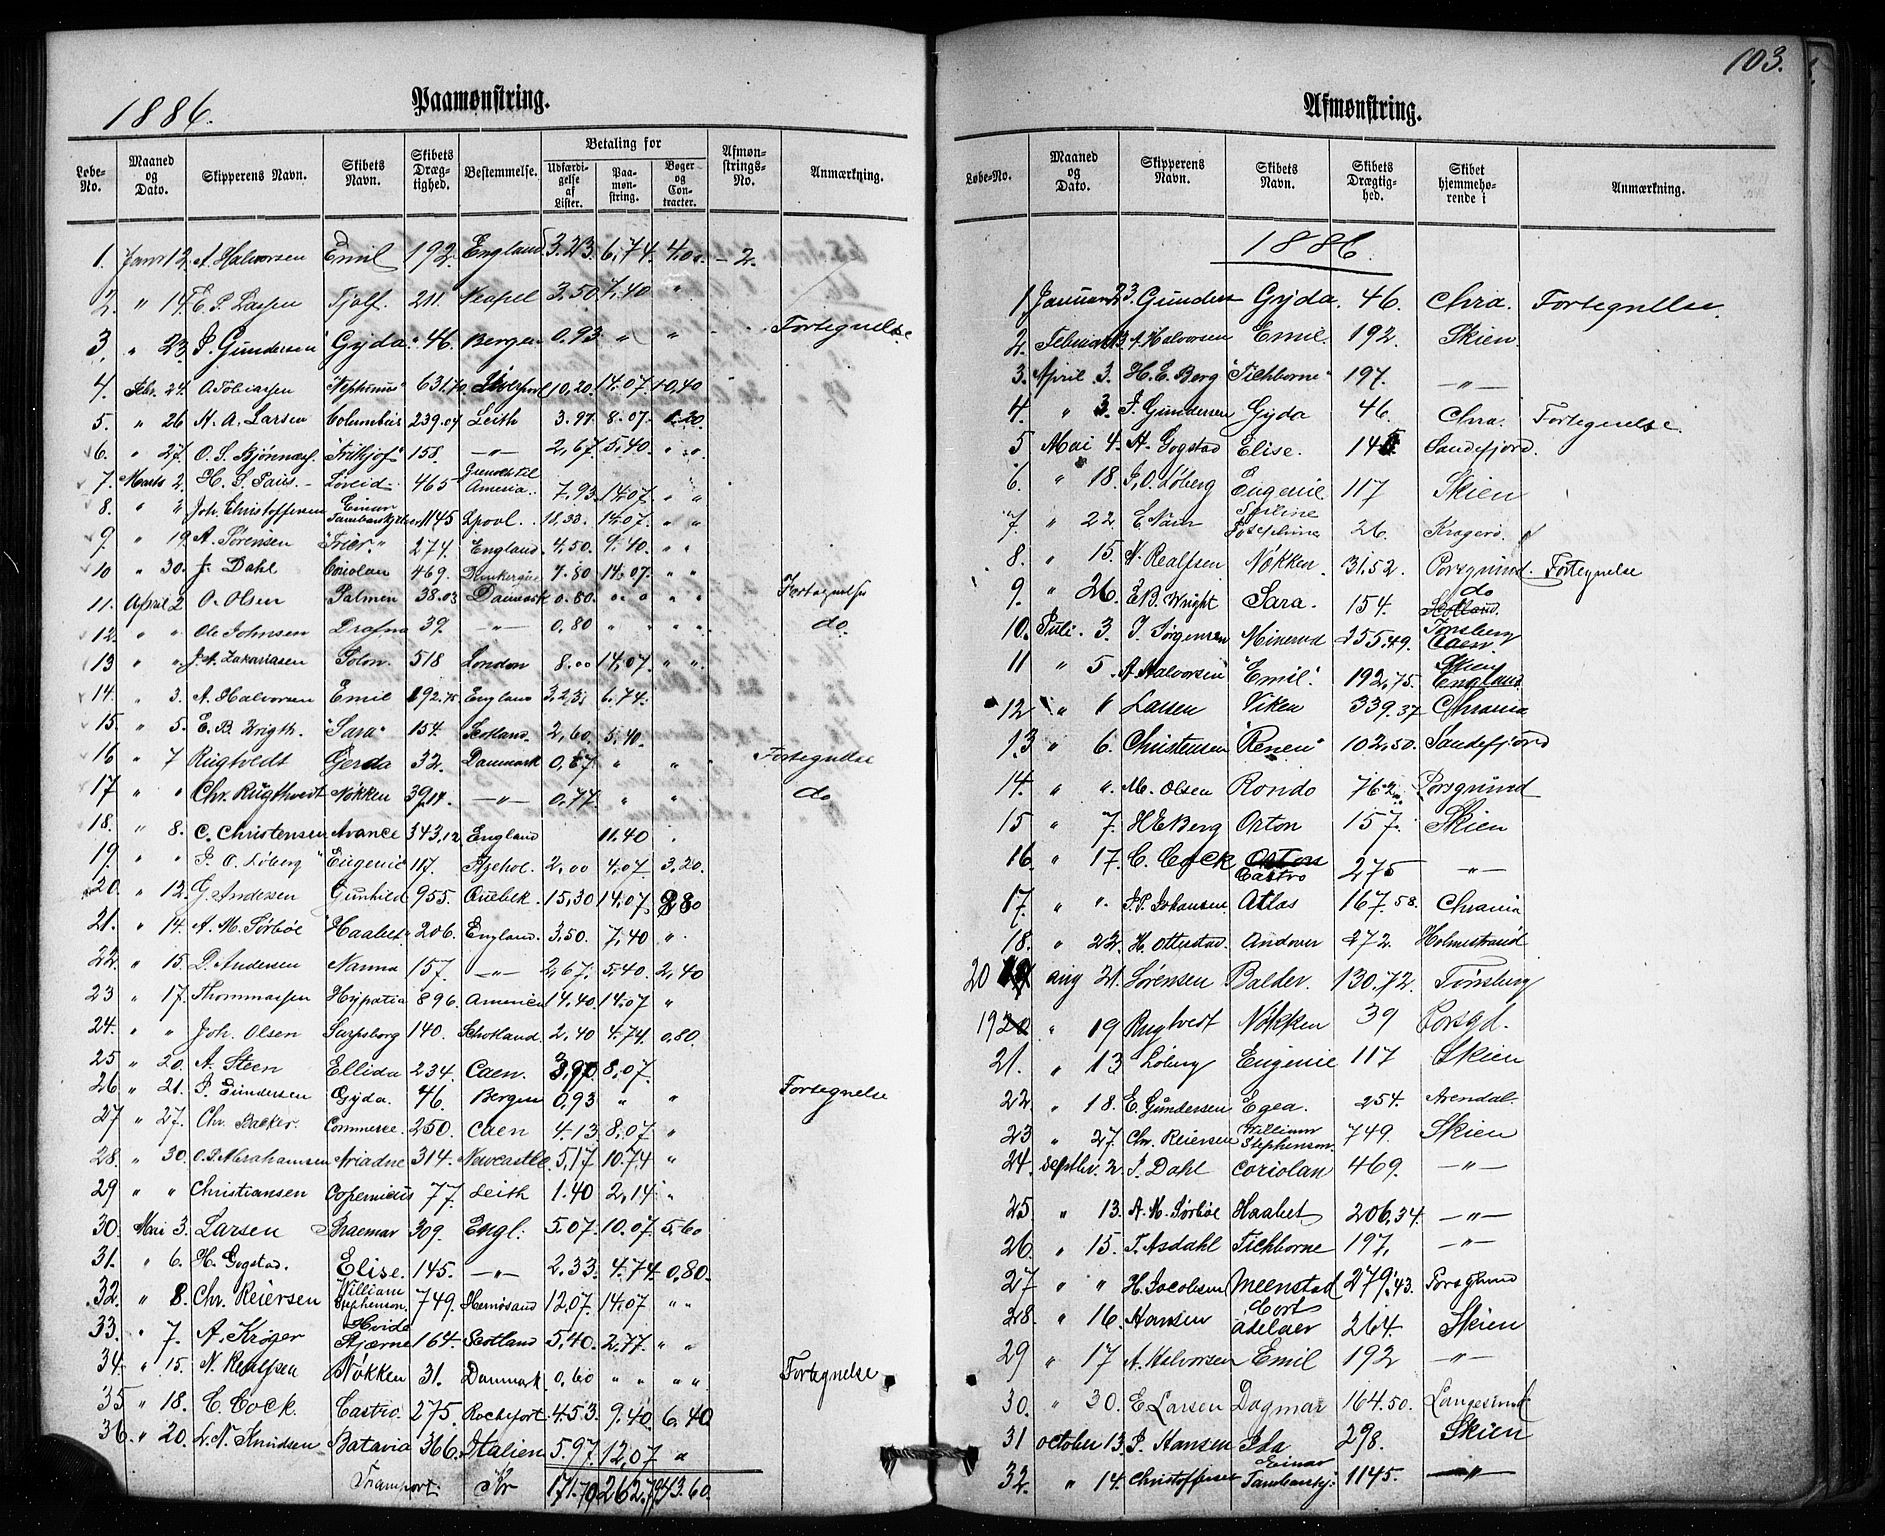 103.
1886.
Paamønstring.
Løbe-No. Maaned og Dato. Skipperens Navn. Skibets Navn. Skibets Dræg-tighed. Bestemmelse. Betaling for Udfærdi-gelse af Lister. Paa-møn-string. Bøger og Con-tracter. Afmøn-strings-No. Anmærkning.
1. Janr 12. A. Halvorsen Emil 192. England 3.23. 6,74. 4.00. - 2.
2. " 14. E. P. Lassen Tjalf. 211. Neapel 3.50 7,40 "
3. " 23. P. Gundersen Gyda. 46. Bergen 0.93 " " Fortegnelse
4. Febr. 24. O. Tobiassen "Neptunus" 631,70. Liverpool 10,20. 14.07. 10,40
5. " 26 H. A. Larsen Columbus 239.04 Leith 3.97. 8.07.
6. " 27. O. S. Bjønnæss. "Frithjof" 158. —"— 2,67. 5,40. " "
7. Marts 2. H. S. Paus. Løveid. 465 Ameria. 7,93. 14.07. " "
8. " " Joh. Christoffersen Einar Tambarskjelver 1145 Lpool. 12.33. 14.07. " "
9. " 19. A. Sørensen "Frier." 274. England. 4,50. 9.40. " "
10 " 30. J. Dahl Coriolan 469. Dunkerque 7.80 14.07. " "
11. April 2 O. Olsen Palmen 38.03 Danmark 0.80. " " " " Fortegnelse
12. " " Ole Johnsen Drafna 39. —"— 0,80 " " " " do.
13 " " J. A. Zakariasen Solon. 518 London 8.00 14,07. " "
14. " 3. A. Halvorsen Emil 192.75 England 3,23. 6.74.
15. " 5. E. B. Wrigth. "Sara" 154. Scotland. 2,60. 5,40.
16 " 7 Rugtvedt Gerda 32. Danmark 0,87. " " Fortegnelse
17 " " Chr. Rugthvedt Nökken 39,14. —"— 0,77. " " do
18. " 8. C. Christensen Avance 343,12 England 11.40
19. " " P. O. Løberg "Eugenie 117. 2,00 4,07. 3,20.
20. " 12. G. Andersen Gunhild 955. Quebek. 15,30 14,07. 2,80
21. " 14. A. M. Sørbøe "Haabet" 206. England. 3.50. 7,40 "
22. " 15. D. Andersen Nanna 157. —"— 2,67. 5,40. 2,40
23 " 17. Thommassen Hypatia 896. America 14.40 14.07 "
24. " " Joh. Olsen Sarpsborg 140. Schotland. 2,40 4.74. 0,80.
25 " 20. A. Steen Ellida 234. Caen. 3,97. 8,07.
26 " 21. P. Gundersen Gyda. 46. Bergen 0,93 " " Fortegnelse
27 " 27. Chr. Backer. Commerse. 250. Caen 4.13. 8.07. "
28. " 30. O. P. Abrahamsen Ariadne 314. Newcastle. 5,17. 10.74 "
29 " " Christiansen Copernicus 77. Leith 1.40 2,14. "
30. Mai 3. Larsen Braemar 309. Engl: 5.07. 10.07. 5,60
31. " 6. H. Gogstad. Elise. 145. —"— 2,33. 4.74. 0,80.
32. " 8. Chr. Reiersen William Stephenson. 749. Hernøsand 12.07. 14.07 " "
33. " 7. A. Krøger Hvide Stjærne 164. Scotland 5,40. 2,77. " "
34. " 15. N. Realfsen Nökken 31. Danmark. 0,60 " " " " Fortegnelse
35 " 18. C. Cock. Castro. 275. Rochefort. 4.53. 9.40. 6.40
36. " 20. L. N. Knudsen Batavia 366. Italien 5.97. 12,07 "
Transport. Kr 171.70 262.79 43.60.
Afmønstring.
Løbe-No. Maaned og Dato. Skipperens Navn. Skibets Navn. Skibets Drægtig-hed. Skibet hjemmehø-rende i Anmærkning.
1886
1 Januar 23. Gunders Gyda. 46. Chra. Fortegnelse.
2. Februar 13. A. Halvorsen Emil. 192. Skien.
3. April 3. H. E. Berg "Tichborne" 197. —"—
4 " 3. P. Gundersen Gyda 46. Chra. Fortegnelse.
5 Mai 4. H. Gogstad Elise. 145. Sandefjord.
6. " 18. P. O. Løberg Eugenie 117 Skien
7 " 22. E. Næss Josephine 26. Kragerø.
8. " 15. N. Realfsen Nökken. 31.52. Porsgrund. Fortegnelse
9. " 26. E. B. Wright Sara. 154. do Scotland.
10. Juli. 3. J. Jørgensen Minerva 355.49. Tønsberg Caen.
11 " 5. A. Halvorsen "Emil." 192,75. Skien England
12 " " Larsen Viken 339.37 Chrania
13 " 6. Christensen "Renen" 102,50. Sandefjord
14. " " M. Olsen Rondo 762. Porsgrund
15 " 7. H E Berg Orion 157. Skien
16. " 17. C. Cock Castro 275 —"—
17. " " J. P. Johansen. Atlas 167.58. Chrania
18. " 22. H. Otterstad. Andover 272. Holmestrand
20 19 aug 21. Sørensen Balder. 130.72. Tønsberg
19 20 " 19 Rugtvedt Nökken 39 Porsgd.
21. " 13 Løberg Eugenie 117 Skien
22 " 18. E. Gundersen Egea. 254. Arendal.
23 " 27. Chr. Reiersen William Stephenson. 749. Skien
24. septbr. 2. J. Dahl Coriolan 469. —"—
25. " 13. A. M. Sørbøe Haabet 206,34. —"—
26. " 15. T. Asdahl Tichborne 197. —"—
27 " " H. Jacobsen Meenstad 279.43. Porsgrund
28. " 16. Hansen Cort Adelaer 264. Skien
29 " 17 A. Halvorsen Emil 192 —"—
30. " 30. E. Larsen Dagmar 164.50. Langesund
31 october 13. P. Hansen Ida 298. Skien
32. " 14. Christoffersen Einar Tambarskj: 1145. —"—